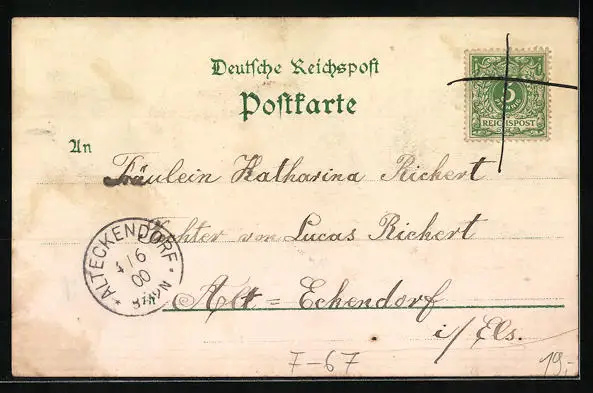 Deutsche Reichspost
Postkarte
5
PFENNIG
REICHSPOST
An
Fräulein Katharina Richert
Tochter von Lucas Richert
in Alt=Eckendorf
i/Els.
ALTECKENDORF
4/6
00
8-9N
F-67
19,-